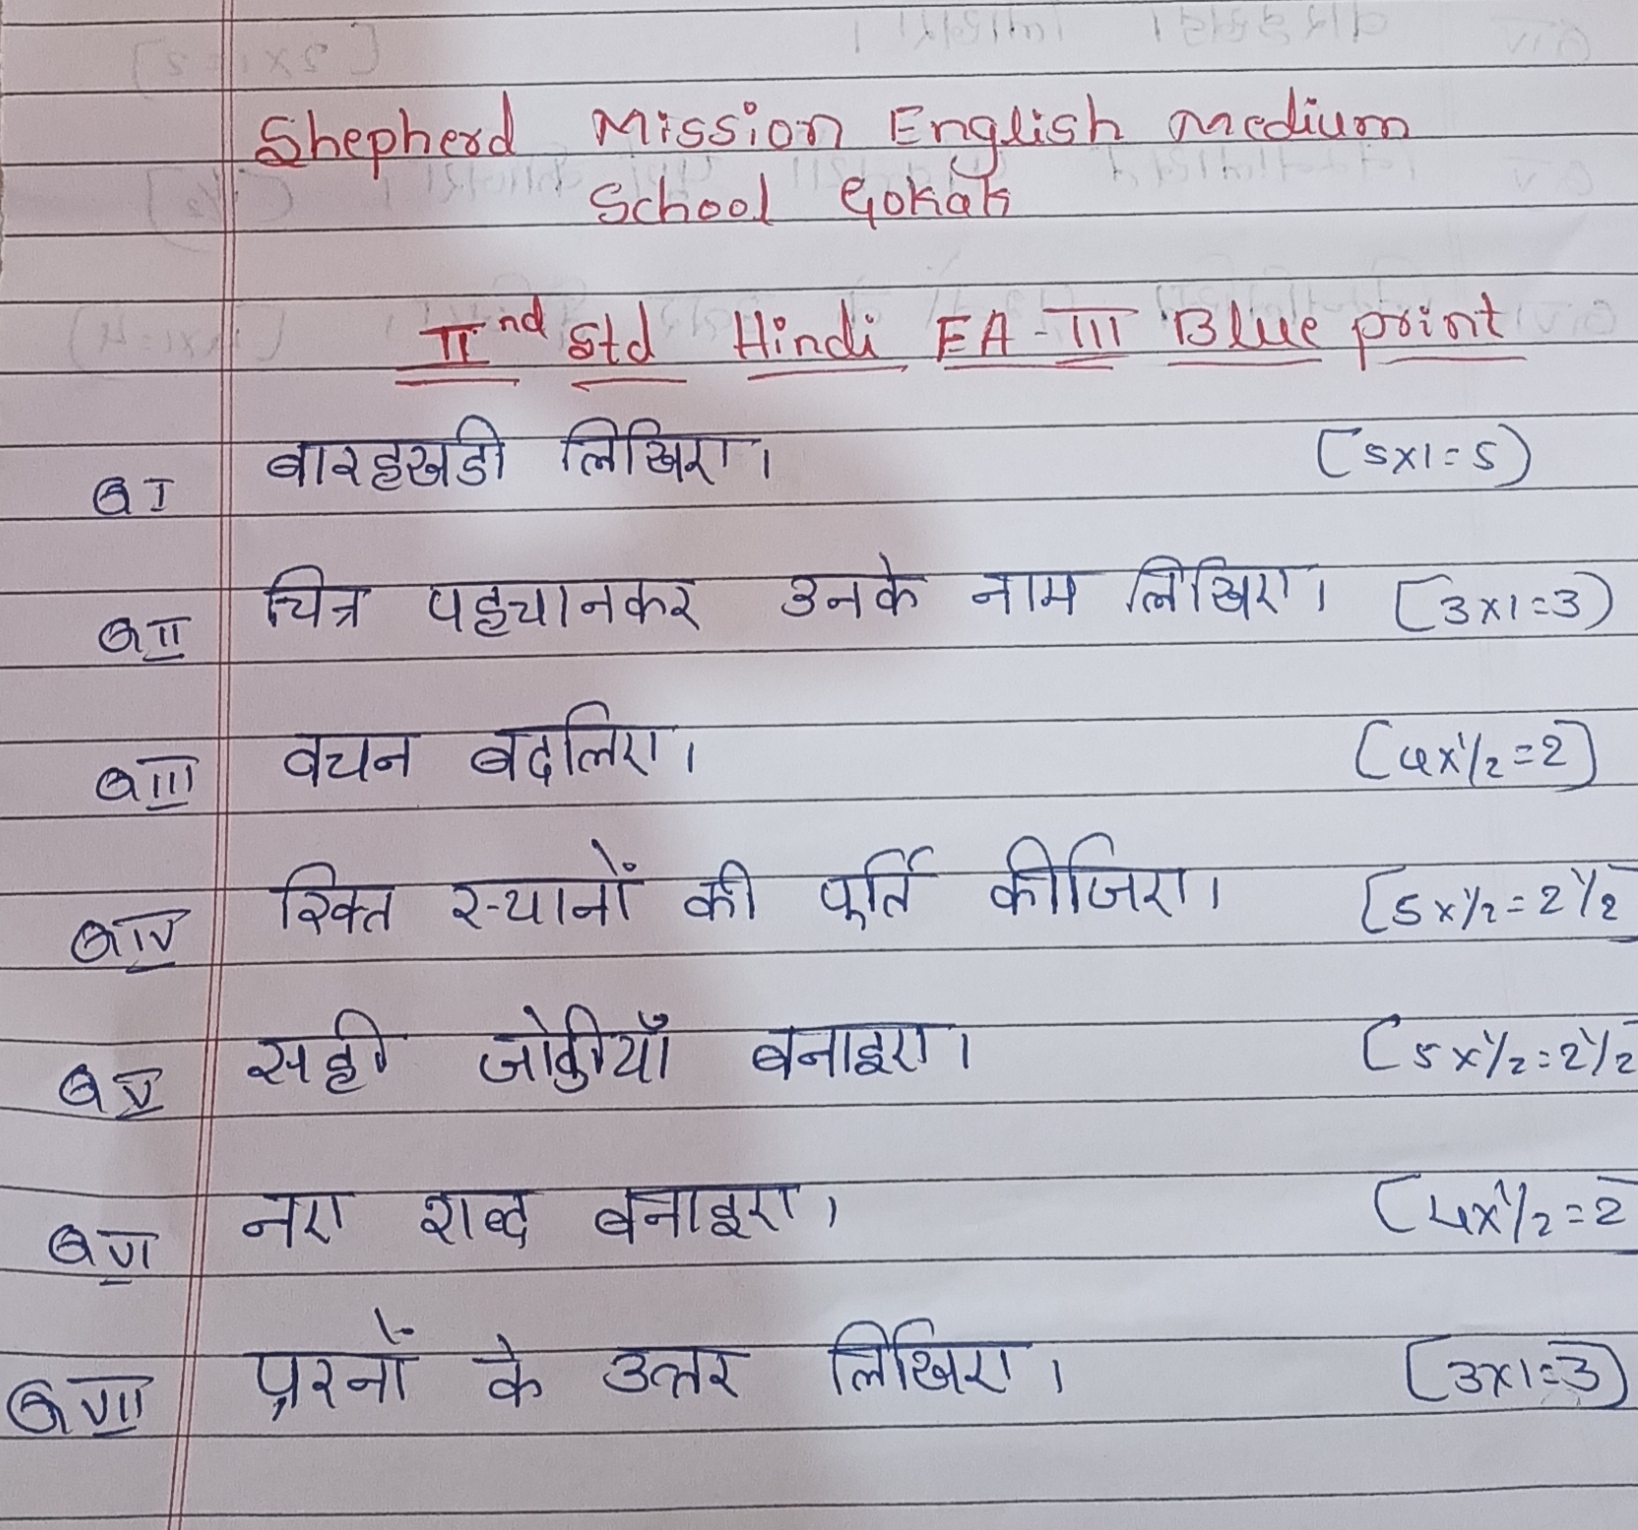 Shepherd Mission English medium
School Gokak
IInd Std Hindi FA-III Blue print
Q I बारहखडी लिखिए। [5x1=5]
Q II चित्र पहचानकर उनके नाम लिखिए। [3x1=3]
Q III वचन बदलिए। [4x1/2=2]
Q IV रिक्त स्थानों की पूर्ति कीजिए। [5x1/2=2 1/2
Q V सही जोड़ीयाँ बनाइए। [5x1/2=2 1/2
Q VI नए शब्द बनाइए। [4x1/2=2
Q VII प्रश्नों के उत्तर लिखिए। [3x1=3]